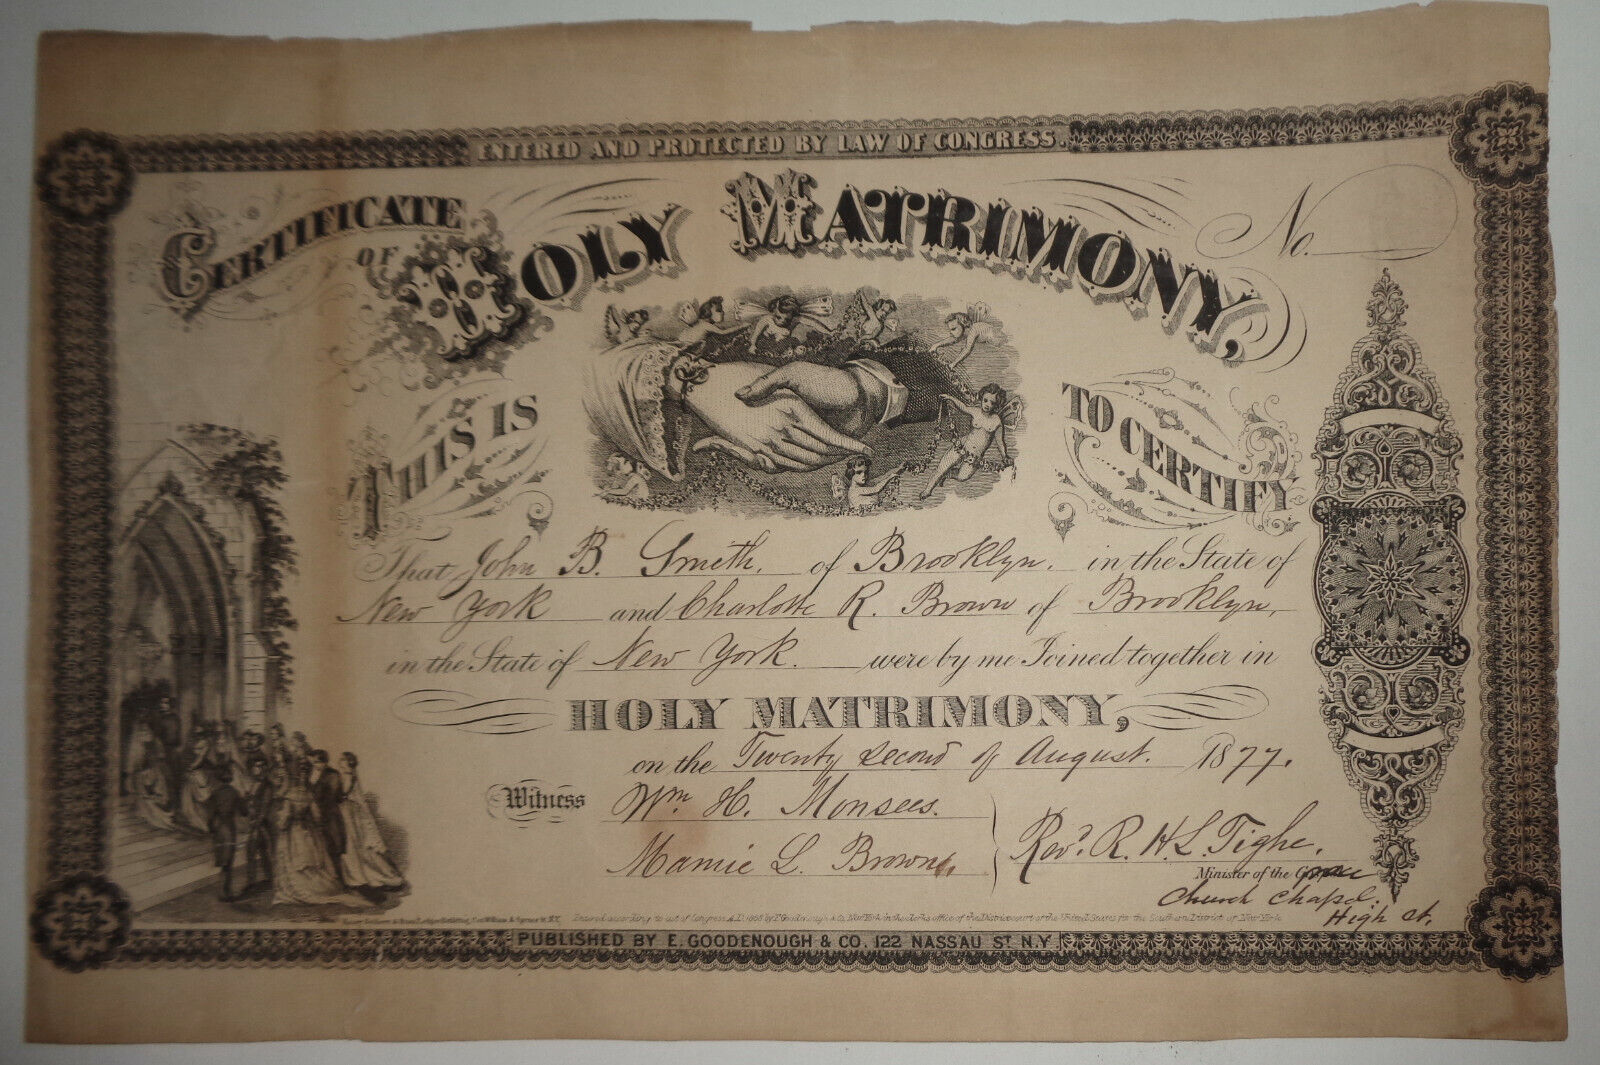 ENTERED AND PROTECTED BY LAW OF CONGRESS.
CERTIFICATE OF HOLY MATRIMONY,
No.
THIS IS TO CERTIFY
That John B. Smith. of Brooklyn. in the State of
New York and Charlotte R. Brown of Brooklyn,
in the State of New York. were by me Joined together in
HOLY MATRIMONY,
on the Twenty second of August. 1877.
Witness Wm H. Monsees.
Mamie L. Brown.
Revd. R. H. L. Tighe.
Minister of the Grace
Church Chapel.
High St.
Entered according to act of Congress A.D. 1865 by E. Goodenough & Co. New York in the clerks office of the District court of the United States for the Southern District of New York.
PUBLISHED BY E. GOODENOUGH & CO. 122 NASSAU ST. N.Y.